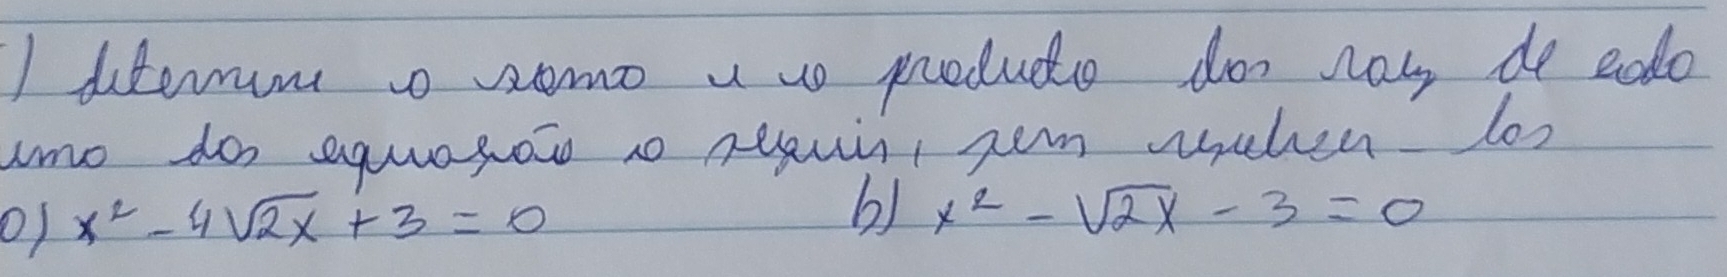 1) determine a soma e o producto das raiz de cada
uma das equação a seguir, sem resolver-las
a) x² - 4√2x + 3 = 0 b) x² - √2x - 3 = 0